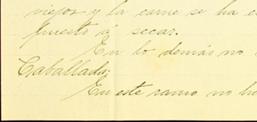 viejos y la carne se ha
puesto á secar.
En lo demás no
Caballada;
En este ramo no